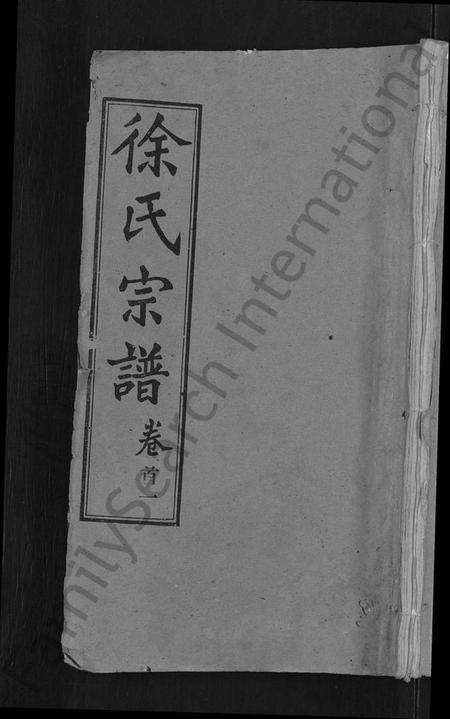 徐氏宗譜卷首一
FamilySearch International